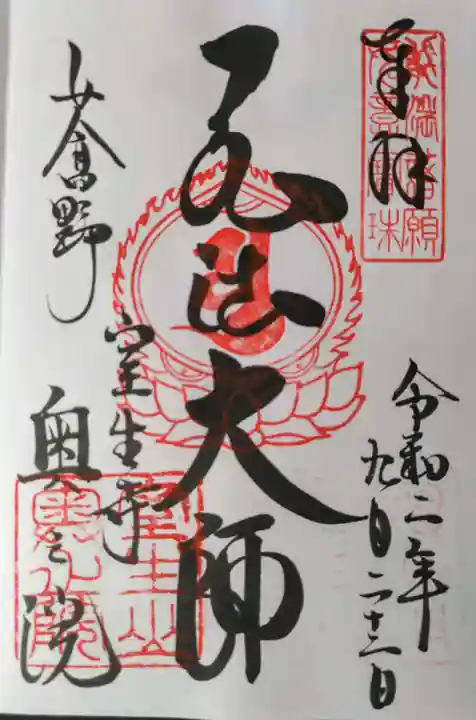 奉拝
令和二年
九月二十三日
弘法大師
女人高野
室生寺
奥之院
室生山
奥之院